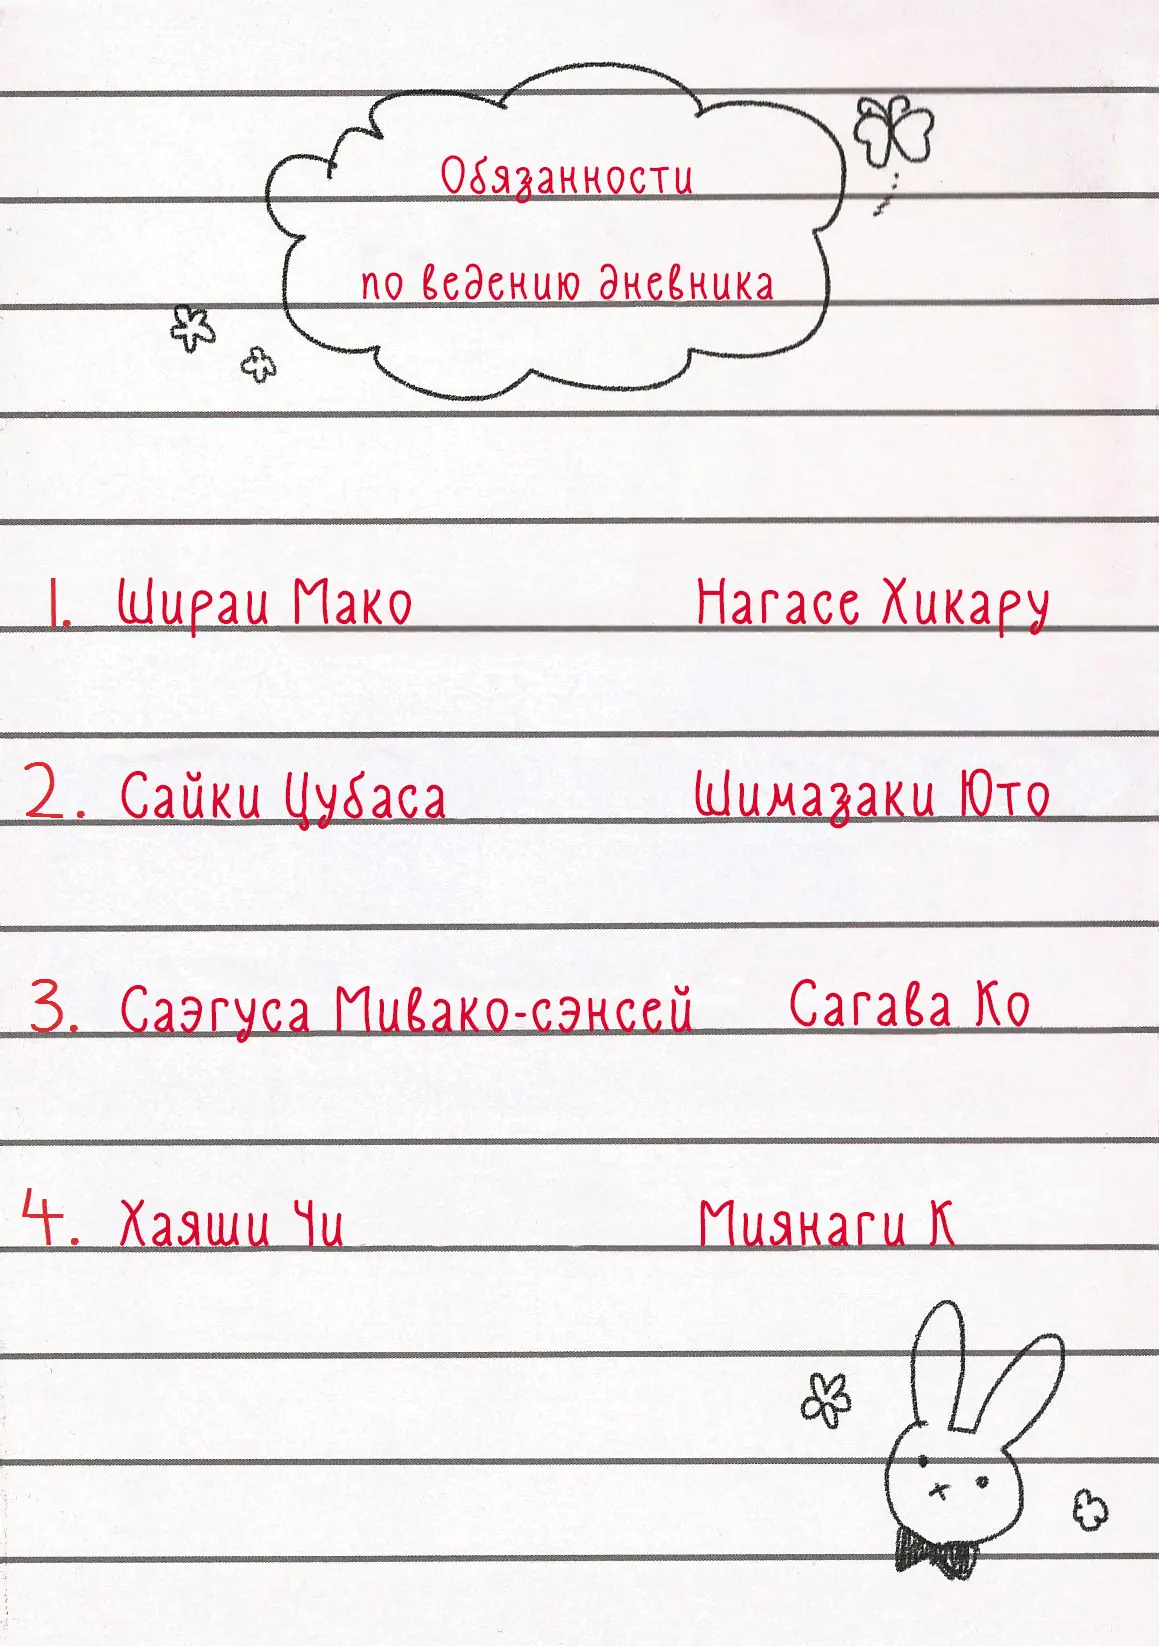 Обязанности
по ведению дневника
1. Шираи Мако Нагасе Хикару
2. Сайки Цубаса Шимазаки Юто
3. Саэгуса Мивако-сэнсей Сагава Ко
4. Хаяши Чи Миянаги К